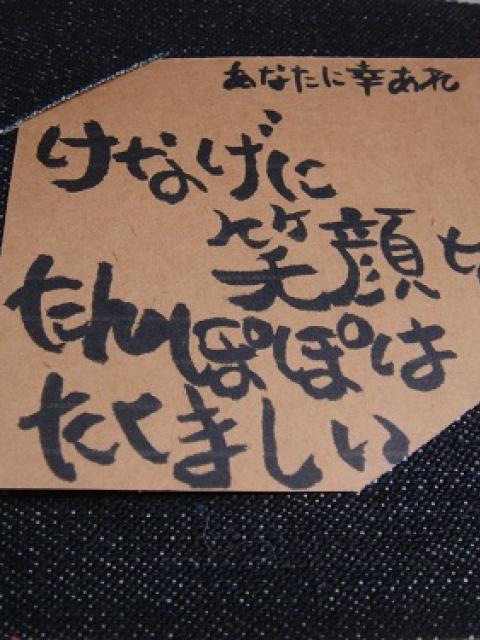 あなたに幸あれ
けなげに
笑顔
たんぽぽは
たくましい